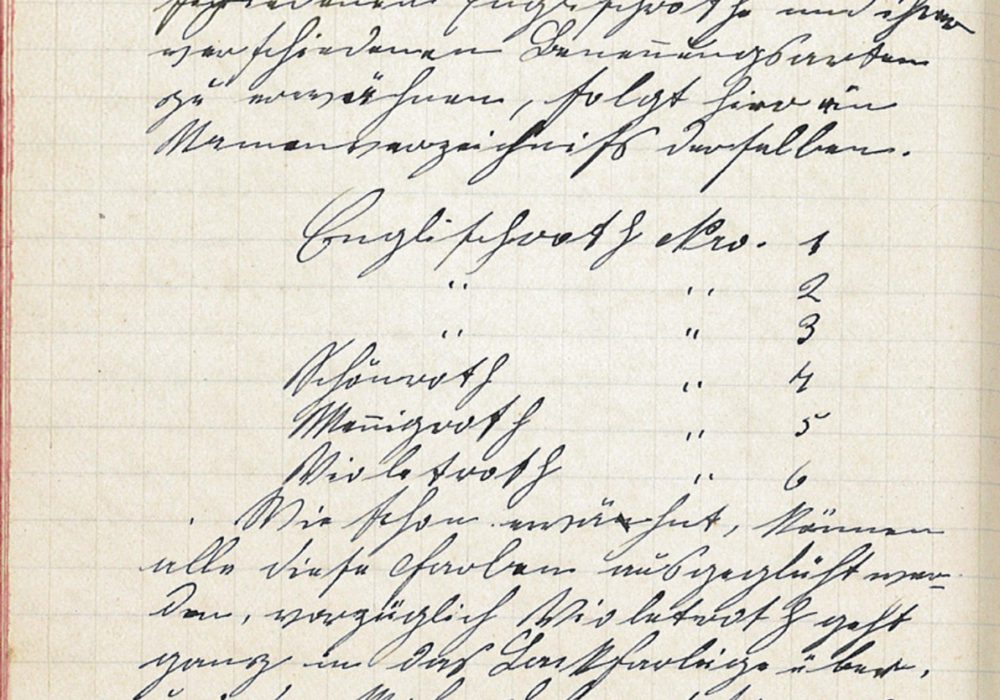 Englischroth und ihrer
verschiedenen Benennungsarten
zu erwähnen, folgt hier ein
Namenverzeichniß derselben.
Englischroth Nro. 1
" " 2
" " 3
Schönroth " 4
Mennigroth " 5
Violetroth " 6
Wie schon erwähnt, können
alle diese Farben ausgeglüht wer-
den, vorzüglich Violetroth geht
ganz in das Lackfarbige über,